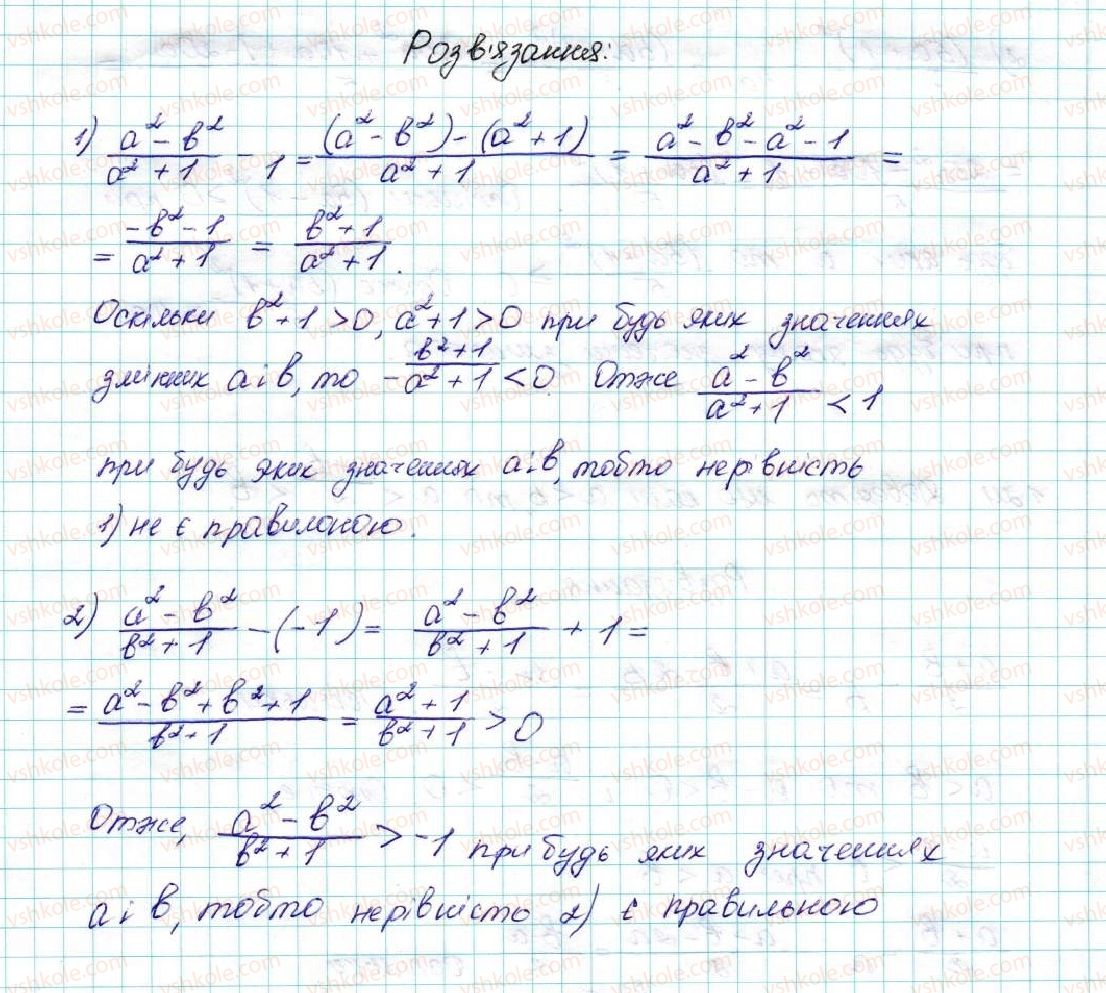 Розв'язання:
1) (a² - b²)/(a² + 1) - 1 = ((a² - b²) - (a² + 1))/(a² + 1) = (a² - b² - a² - 1)/(a² + 1) =
= (-b² - 1)/(a² + 1) = (b² + 1)/(a² + 1).
Оскільки b² + 1 > 0, a² + 1 > 0 при будь яких значеннях
змінних a і b, то -(b² + 1)/(a² + 1) < 0. Отже (a² - b²)/(a² + 1) < 1
при будь яких значеннях a і b, тобто нерівність
1) не є правильною.
2) (a² - b²)/(b² + 1) - (-1) = (a² - b²)/(b² + 1) + 1 =
= (a² - b² + b² + 1)/(b² + 1) = (a² + 1)/(b² + 1) > 0
Отже, (a² - b²)/(b² + 1) > -1 при будь яких значеннях
a і b, тобто нерівність 2) є правильною
vshkole.com